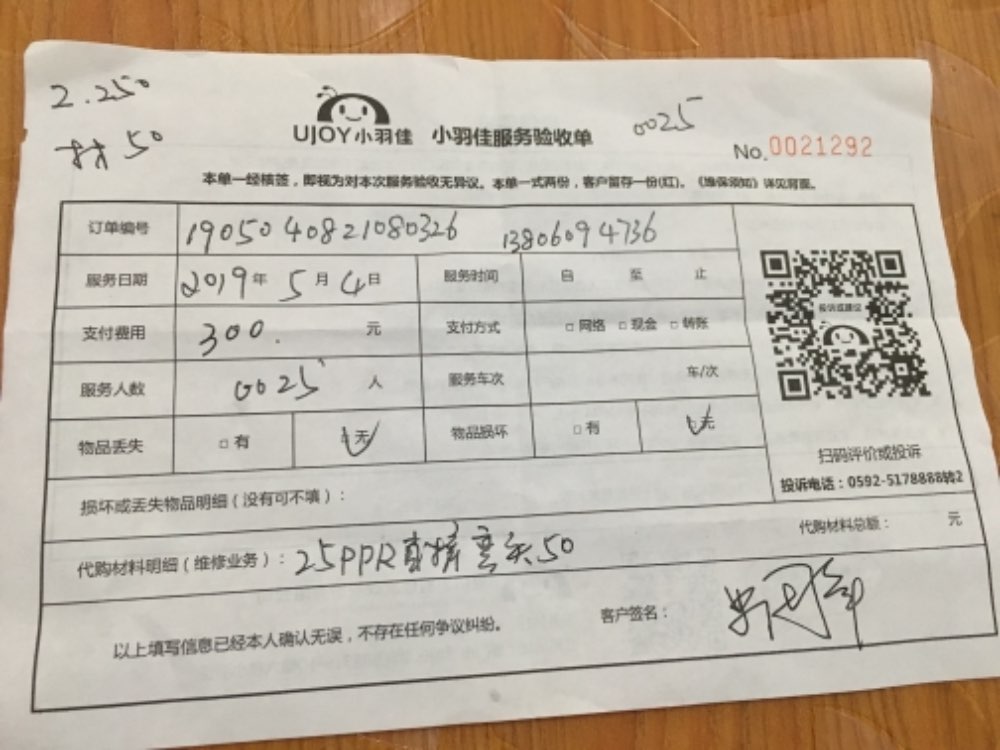 2.250
材50
UJOY小羽佳 小羽佳服务验收单
0025
No.0021292
本单一经核签，即视为对本次服务验收无异议。本单一式两份，客户留存一份(红)。《维保须知》详见背面。
订单编号 1905040821080326 13806094736
服务日期 2019年5月4日 服务时间 自 至 止
支付费用 300. 元 支付方式 □网络 □现金 □转账
投诉或建议
服务人数 0025 人 服务车次 车/次
物品丢失 □有 □无 物品损坏 □有 □无
扫码评价或投诉
投诉电话：0592-5178888转2
损坏或丢失物品明细（没有可不填）：
代购材料明细（维修业务）：25PPR直接弯头50 代购材料总额： 元
以上填写信息已经本人确认无误，不存在任何争议纠纷。 客户签名：